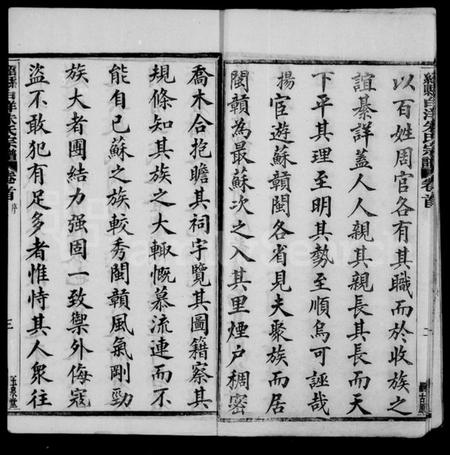 以百姓周官各有其職而於收族之
誼綦詳蓋人人親其親長其長而天
下平其理至明其勢至順烏可誣哉
揚宦遊蘇贛閩各省見夫聚族而居
閩贛為最蘇次之入其里煙戶稠密
喬木合抱瞻其祠宇覽其圖籍察其
規條知其族之大輒慨慕流連而不
能自已蘇之族較秀閩贛風氣剛勁
族大者團結力强固一致禦外侮寇
盜不敢犯有足多者惟恃其人衆往
卷首
三